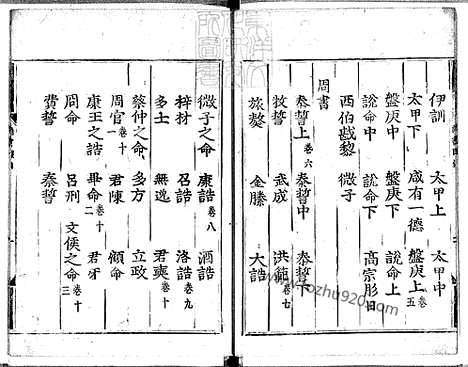 伊訓 太甲上 太甲中
太甲下 咸有一德
盤庚中 盤庚下 盤庚上 卷五
說命中 說命下 說命上
西伯戡黎 微子 高宗肜日
周書
泰誓上 卷六 泰誓中 泰誓下
牧誓 武成 洪範 卷七
旅獒 金縢 大誥
微子之命 康誥 卷八 酒誥
梓材 召誥 洛誥 卷九
多士 無逸 君奭 卷十
蔡仲之命 多方 立政
周官 卷十一 君陳 顧命
康王之誥 畢命 卷十二 君牙
冏命 呂刑 文侯之命 卷十三
費誓 秦誓
www.kozhu920.com